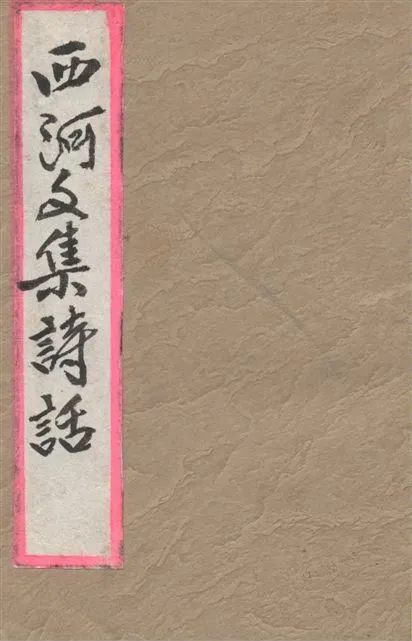 西河文集詩話